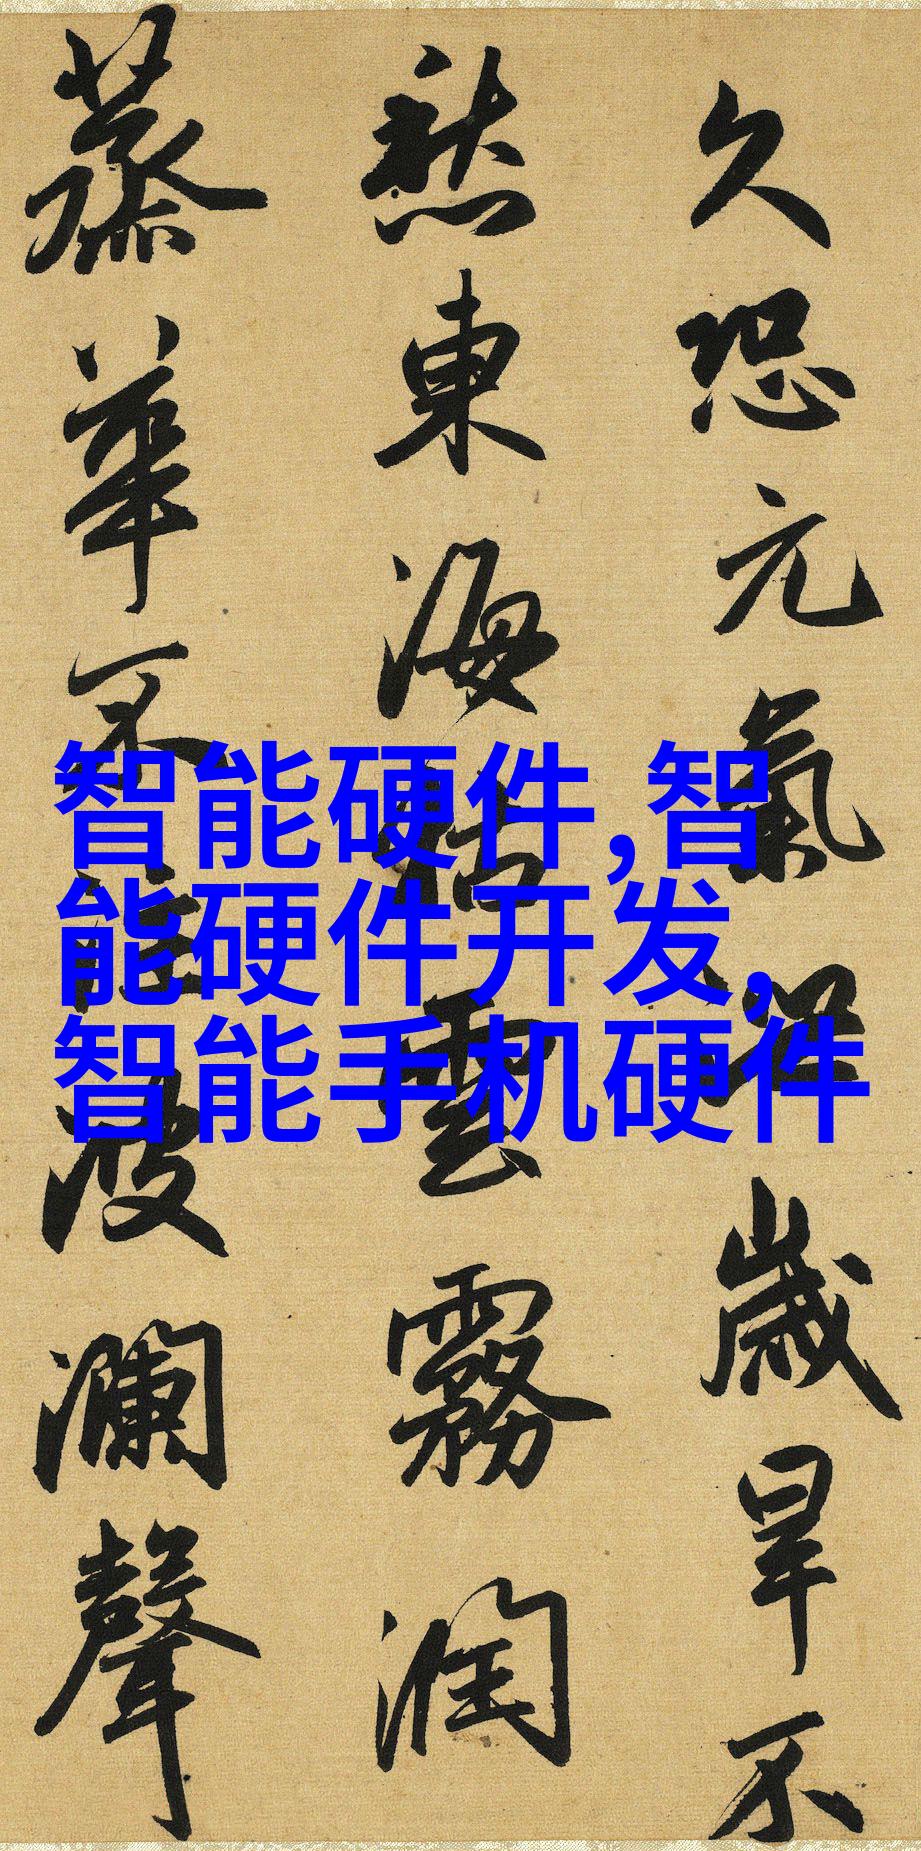 久恐元氣泄歲旱不
愁東海枯雲霧潤
蒸華不注波瀾聲
智能硬件,智
能硬件开发,
智能手机硬件